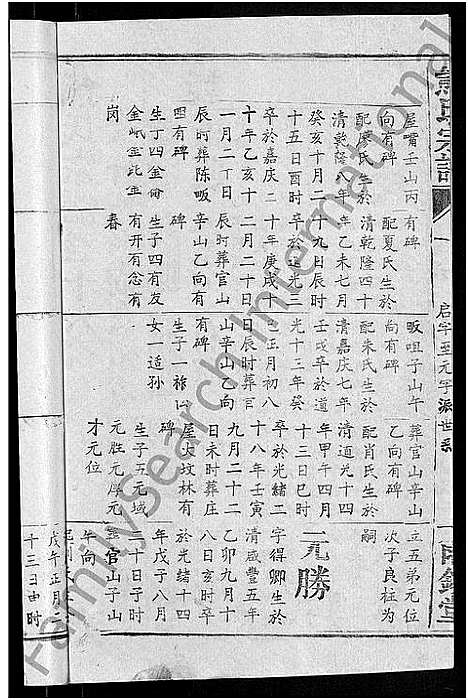 氏宗譜
启字至元字派世系
屋嘴壬山丙
向有碑
配廖氏生於
清乾隆八年
癸亥十月二
十五日酉时
卒於嘉庆二
十年乙亥十
一月二十日
辰时葬陈畈
四有碑
生子四金
金岷金
岗
有碑
配夏氏生於
清乾隆四十
年乙未七月
十九日辰时
卒於道光三
十年庚戌十
二月二十日
辰时葬官山
辛山乙向有
碑
生子四有友
有开有念有
春
畈咀子山午
向有碑
配朱氏生於
清嘉庆七年
壬戌卒於道
光十三年癸
巳正月初八
日辰时葬官
山辛山乙向
有碑
生子一
女一适孙
葬官山辛山
乙向有碑
配肖氏生於
清道光十四
年甲午四月
十三日巳时
卒於光绪二
十八年壬寅
九月二十二
日未时葬庄
屋火坟林有
碑
生子五元域
元胜元厚元
才元位
立五弟元位
次子良柱为
嗣
元勝
字得卿生於
清咸豐五年
乙卯九月十
八日亥时卒
於光绪十四
年戊子八月
二十日子时
葬官山子山
午向
戊午正月
十三日申时
FamilySearch International